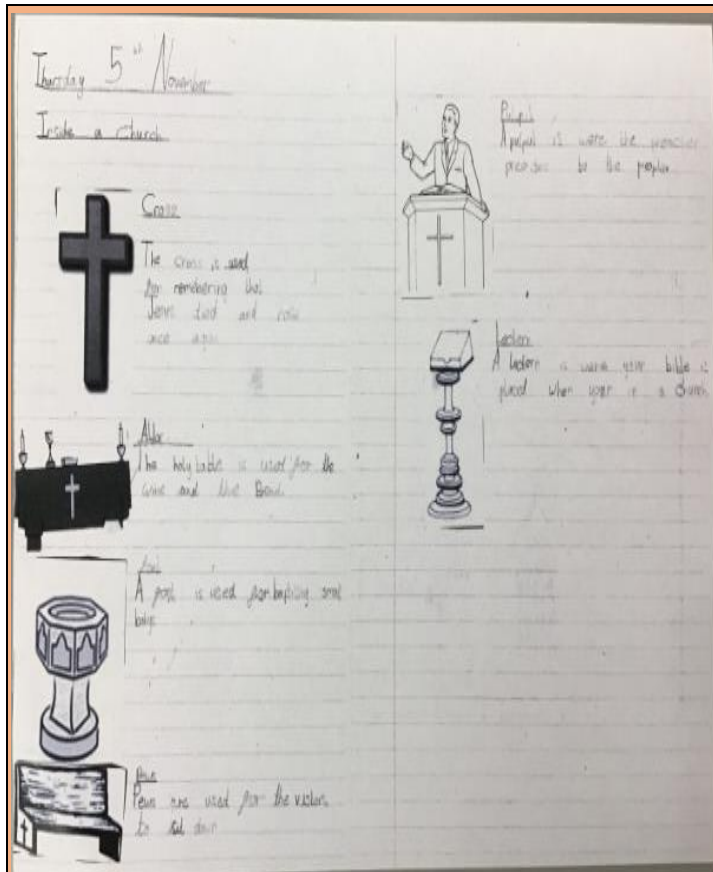 Thursday 5th November
Inside a Church
Cross
The cross is used
for remembering that
Jesus died and rose
once again
Altar
The holy table is used for the
wine and the Bread.
Font
A font is used for baptising small
Pews
Pews are used for the visitors
to sit down
A pulpit is were the preacher
to the peoples
Lectern
A lectern is were your bible is
placed when your in a church.